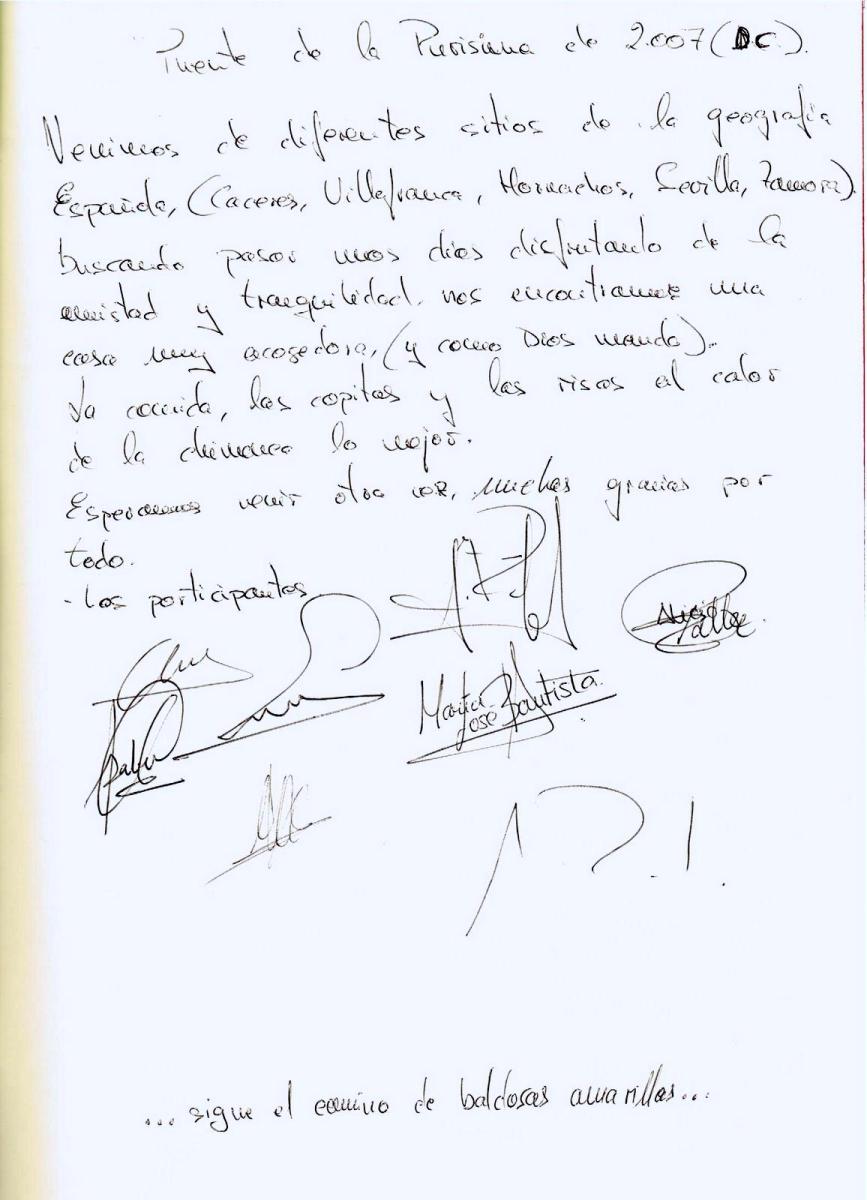 Puente de la Purisima de 2.007 (DC).
Venimos de diferentes sitios de la geografía
Españda, (Caceres, Villafranca, Hornachos, Sevilla, Zamora)
buscando pasar unos días disfrutando de la
amistad y tranquilidad. nos encontramos una
casa muy acogedora, (y como Dios manda).
La comida, las copitas y las risas al calor
de la chimenea lo mejor.
Esperamos venir otra vez, muchas gracias por
todo.
- Los participantes
María
José Bautista.
N.D.I.
... sigue el camino de baldosas amarillas...